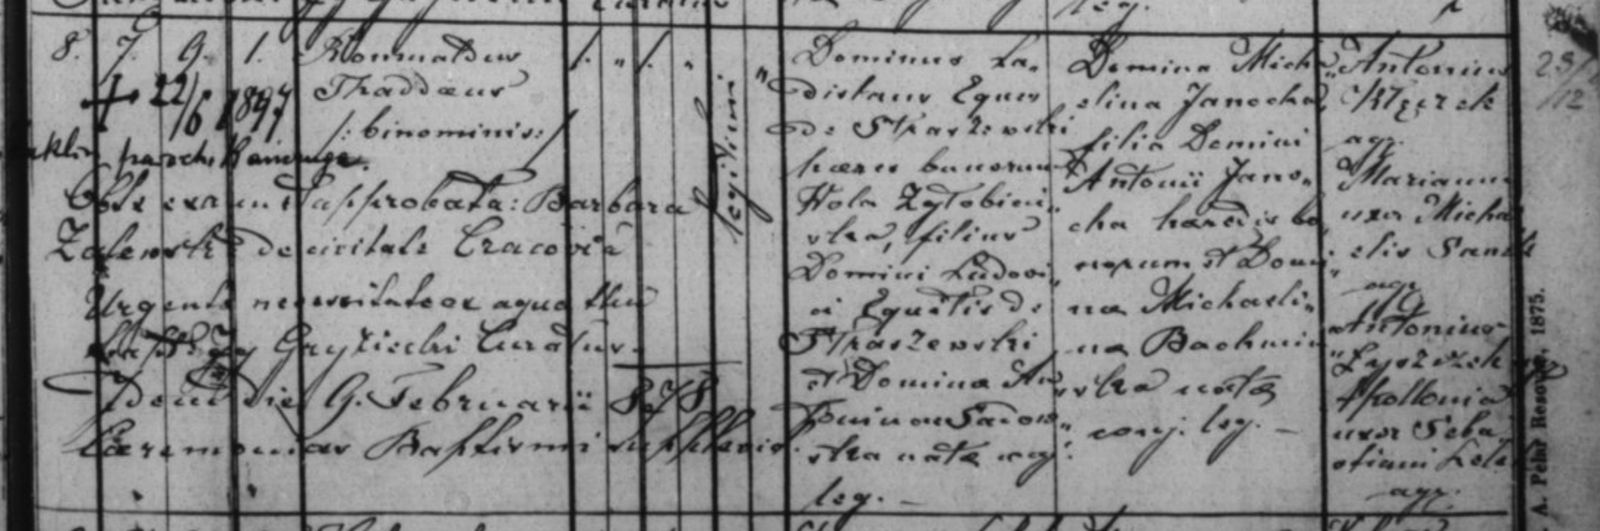 8. 7. 9. 1. Romualdus 1. " 1. "
Thaddæus
/: binominis: /
+ 22/6 1897
paroch.
Obstetrix approbata: Barbara
Zalewska de civitate Cracovia
Urgente necessitate ex aqua
Gryziecki Curatus.
Idem die 9. Februarii 878
Cæremonias Baptismi supplevit.
legitimi
Dominus La-
dislaus Eques
de Straszewski
hæres bonorum
Wola Zgłobień-
ska, filius
Domini Ludovi-
ci Equitis de
Straszewski
et Dominæ An-
toninæ
ska natæ conj.
leg. —
Domina Mich-
alina Janocha,
filia Domini
Antonii Jano-
cha hæredis bo-
norum et Domi-
næ Michaeli-
næ Bachmiń-
ska natæ
conj. leg. —
Antonius
agr.
Marianna
uxor Micha-
elis
agr.
Antonius
Apollonia
uxor Seba-
stiani
agr.
23/12
A. Pelar Resoviæ, 1875.